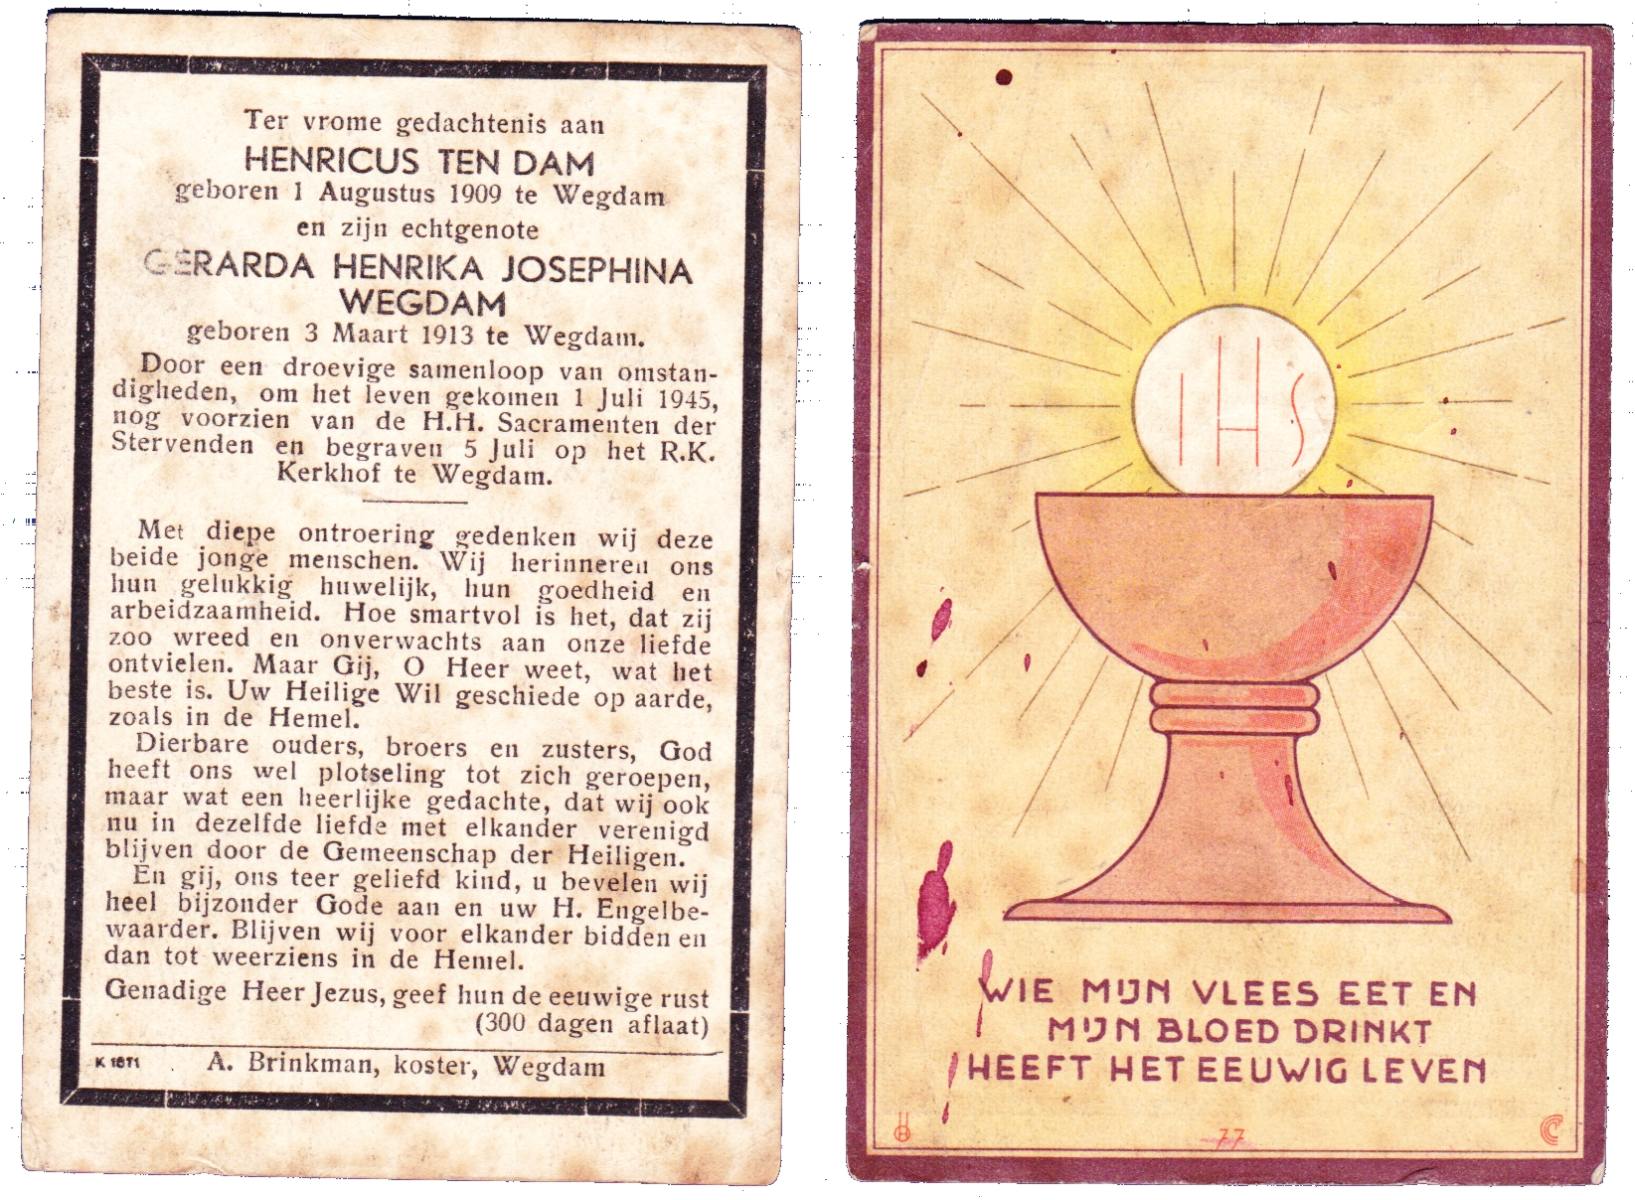 Ter vrome gedachtenis aan
HENRICUS TEN DAM
geboren 1 Augustus 1909 te Wegdam
en zijn echtgenote
GERARDA HENRIKA JOSEPHINA
WEGDAM
geboren 3 Maart 1913 te Wegdam.
Door een droevige samenloop van omstan-
digheden, om het leven gekomen 1 Juli 1945,
nog voorzien van de H.H. Sacramenten der
Stervenden en begraven 5 Juli op het R.K.
Kerkhof te Wegdam.
Met diepe ontroering gedenken wij deze
beide jonge menschen. Wij herinneren ons
hun gelukkig huwelijk, hun goedheid en
arbeidzaamheid. Hoe smartvol is het, dat zij
zoo wreed en onverwachts aan onze liefde
ontvielen. Maar Gij, O Heer weet, wat het
beste is. Uw Heilige Wil geschiede op aarde,
zoals in de Hemel.
Dierbare ouders, broers en zusters, God
heeft ons wel plotseling tot zich geroepen,
maar wat een heerlijke gedachte, dat wij ook
nu in dezelfde liefde met elkander verenigd
blijven door de Gemeenschap der Heiligen.
En gij, ons teer geliefd kind, u bevelen wij
heel bijzonder Gode aan en uw H. Engelbe-
waarder. Blijven wij voor elkander bidden en
dan tot weerziens in de Hemel.
Genadige Heer Jezus, geef hun de eeuwige rust
(300 dagen aflaat)
K 1811 A. Brinkman, koster, Wegdam
IHS
WIE MIJN VLEES EET EN
MIJN BLOED DRINKT
HEEFT HET EEUWIG LEVEN
77